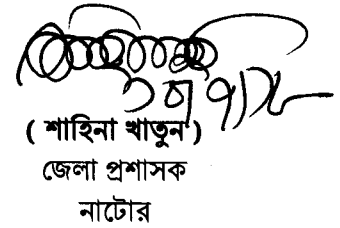 ( শাহিনা খাতুন )
জেলা প্রশাসক
নাটোর